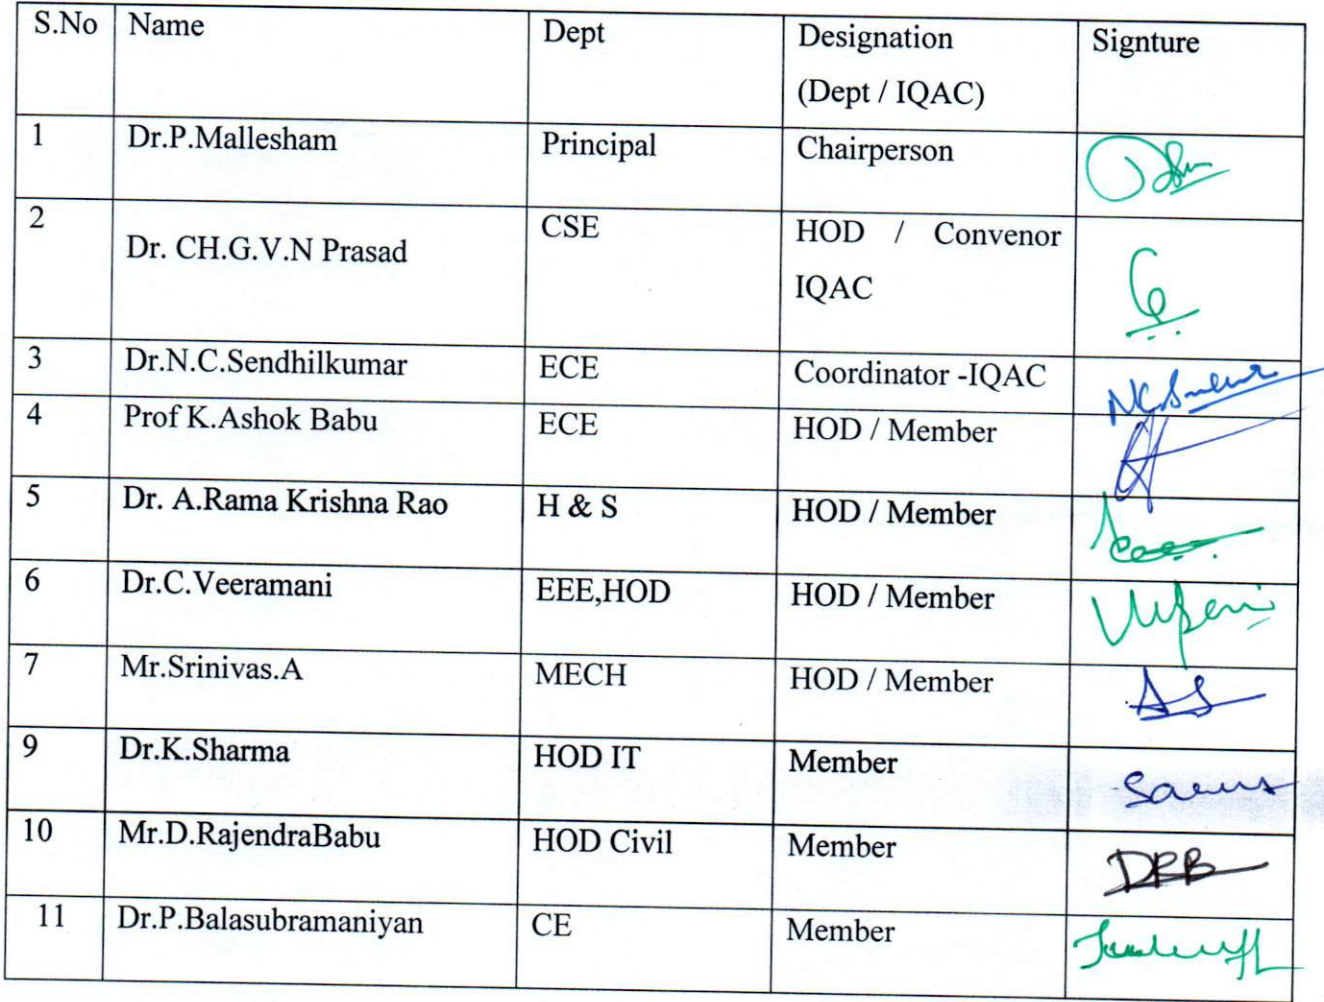 S.No Name Dept Designation Signture
(Dept / IQAC)
1 Dr.P.Mallesham Principal Chairperson
2 Dr. CH.G.V.N Prasad CSE HOD / Convenor
IQAC
3 Dr.N.C.Sendhilkumar ECE Coordinator -IQAC
4 Prof K.Ashok Babu ECE HOD / Member
5 Dr. A.Rama Krishna Rao H & S HOD / Member
6 Dr.C.Veeramani EEE,HOD HOD / Member
7 Mr.Srinivas.A MECH HOD / Member AS
9 Dr.K.Sharma HOD IT Member
10 Mr.D.RajendraBabu HOD Civil Member DRB
11 Dr.P.Balasubramaniyan CE Member